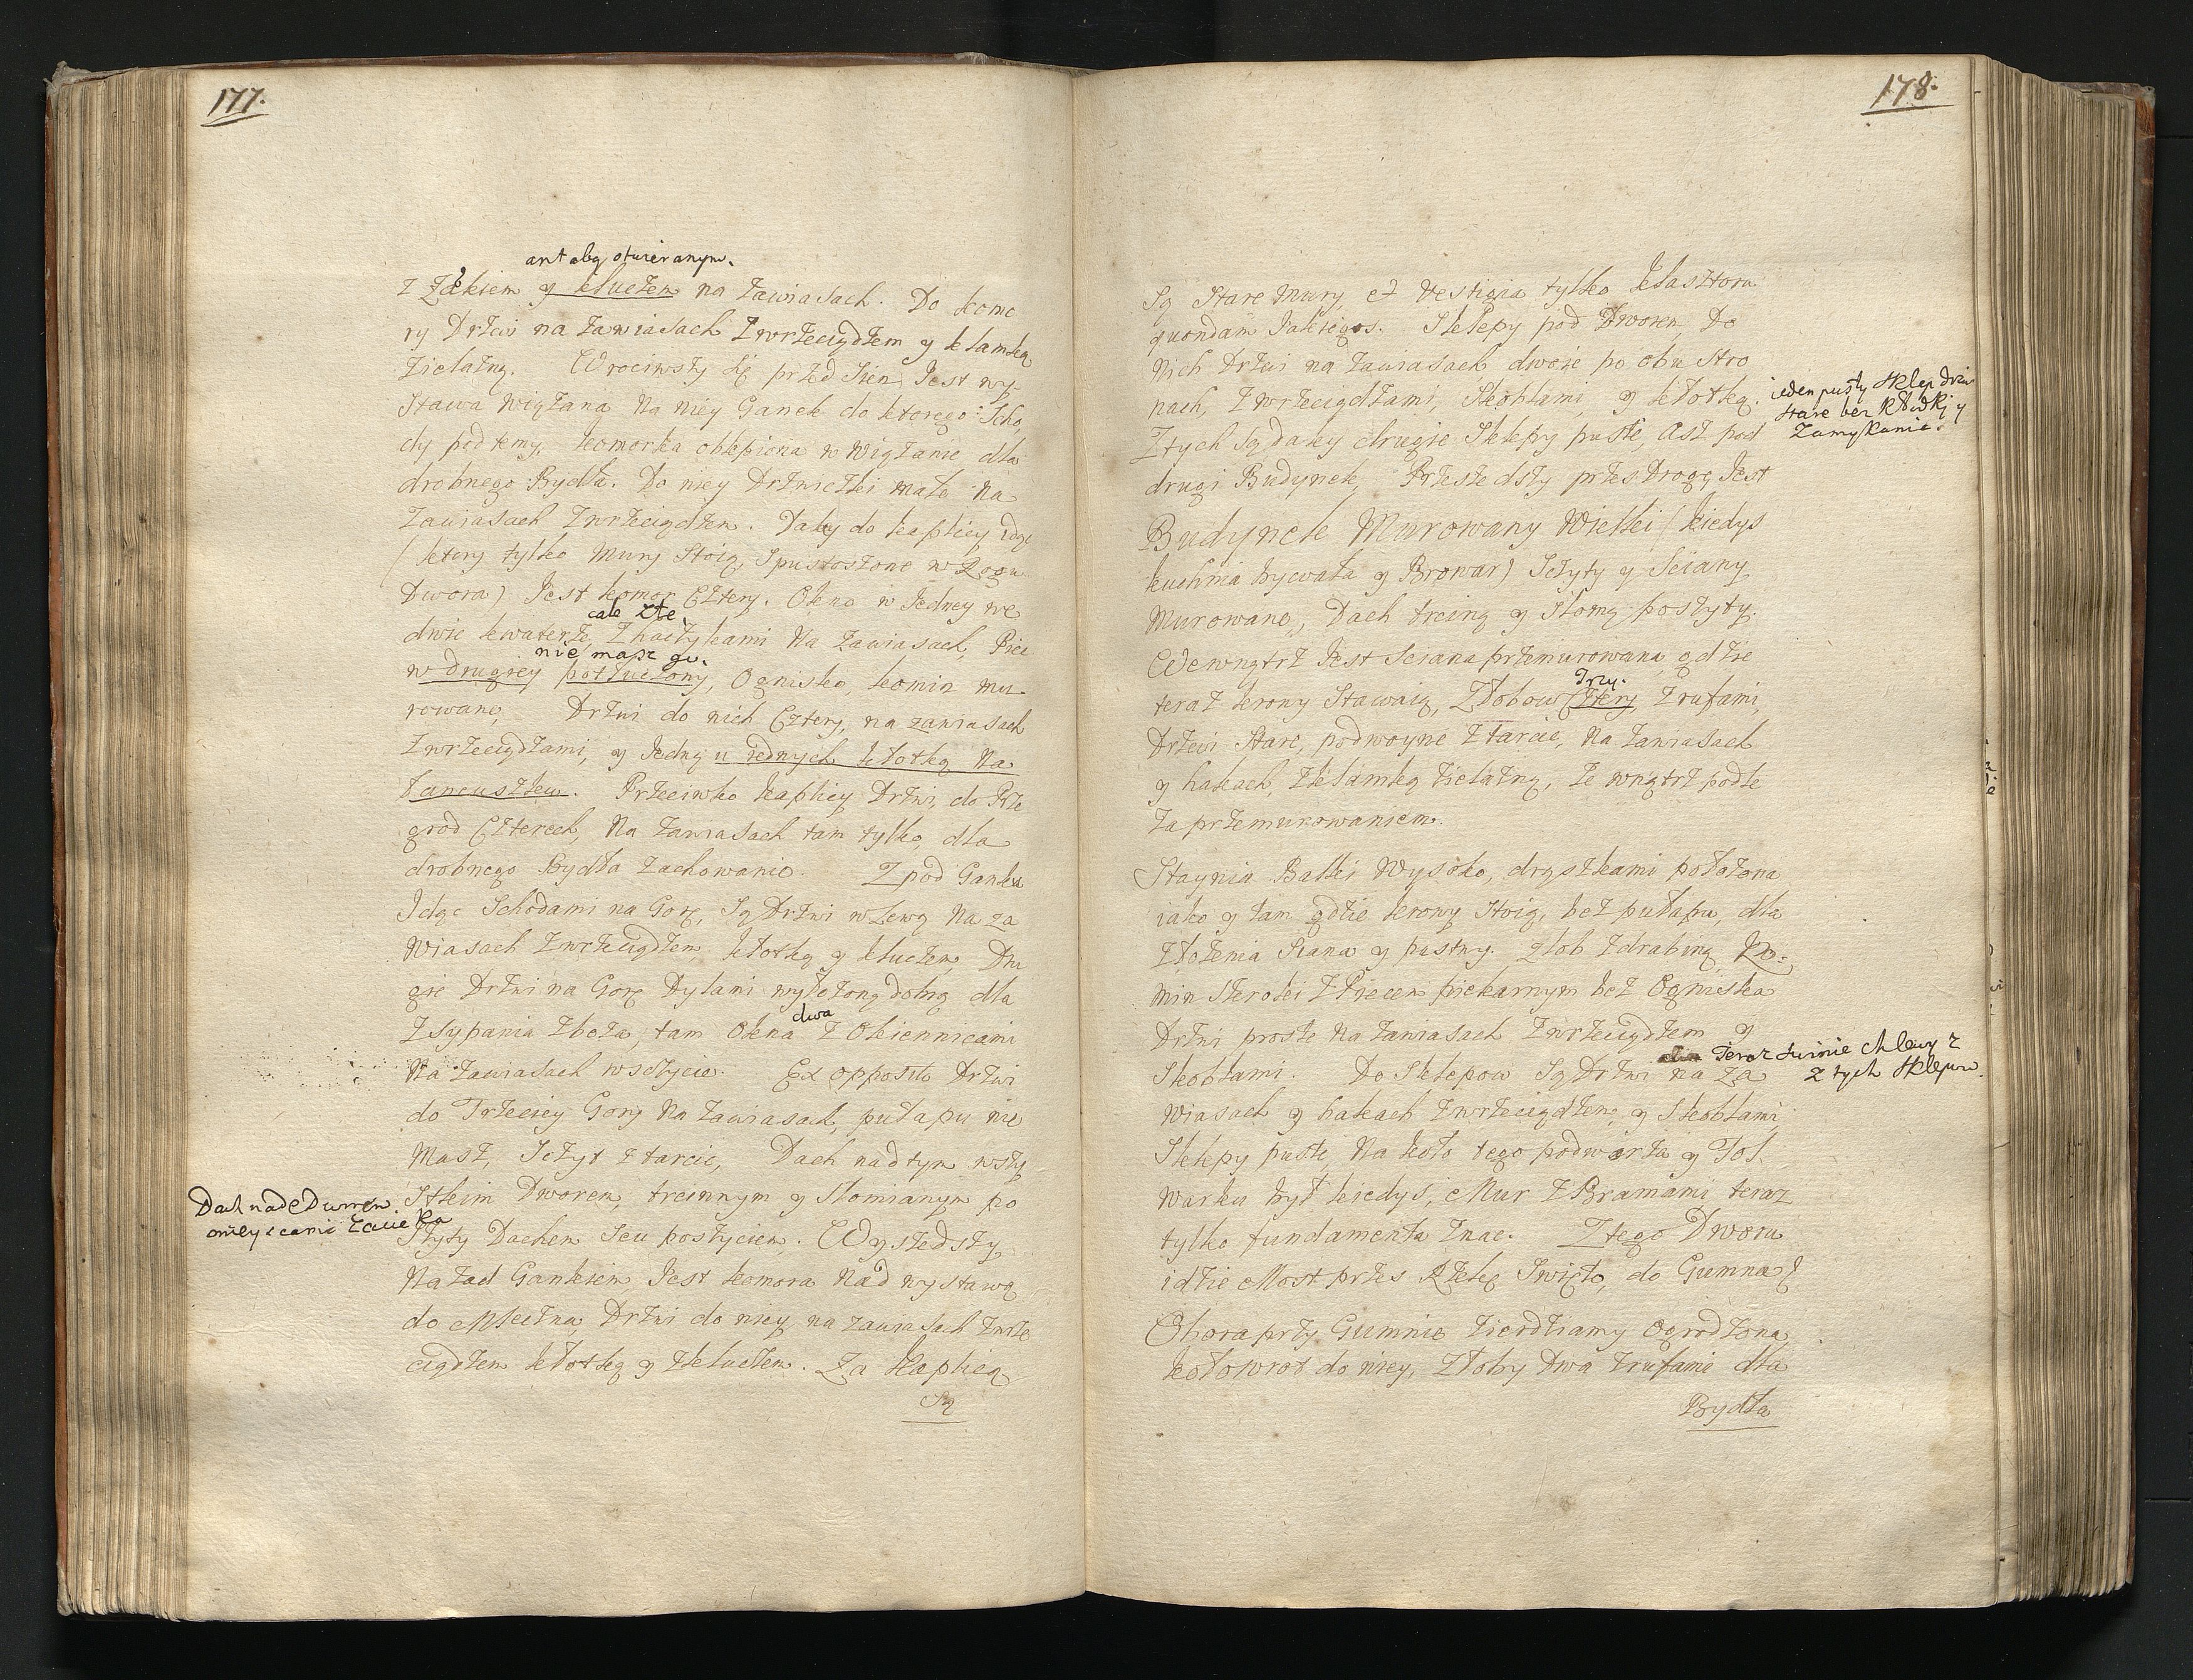 177.
antabą otwieranym.
z Zákiem y kluczem na zawiasach. Do komo
ry Drzwi na zawiasach z wrzeciądzem y klamką
żielazną. Wrociwszy się przed Sień, Jest wy-
stawa wiązana na niey Ganek do ktorego Scho,
dy pod temy, komorka oblepiona w wiązanie dla
drobnego Bydła. Do niey Drzwiczki małe na
zawiasach z wrzeciądzem. Daley do kaplicy idąc
(ktory tylko Mury Stoią, Spustoszone w Rogu
Dwora) Jest komor Cztery. Okno w Jedney we
całe złe.
dwie kwaterze, z haczykami na zawiasach, Piec
nie masz go.
w drugiey potłuczony, Ognisko, komin mu-
rowane, Drzwi do nich Cztery, na zawiasach
z wrzeciądzami, y Jedną u iednych kłotką na
Łancuszku. Przeciwko kaplicy Drzwi, do Prze
grod Czterech, na zawiasach tam tylko, dla
drobnego Bydła zachowanie. Z pod Ganku
Idąc Schodami na Gorę, Są Drzwi w Lewą na za
wiasach z wrzeciądzem, kłotką y kluczem, Dru
gie Drzwi na Gorę Dylami wyłożoną dobrą dla
dwa
Zsypania zboża, tam Okna z Okiennicami
na zawiasach w szczycie. Ex opposito Drzwi
do Trzeciey Gory na zawiasach, pułapu nie
masz, Szczyt z tarcic, Dach nad tym wszy
Dach nade Dworem
stkim Dworem, trcinnym y słomianym po
mieyscami zacieka
szyty Dachem seu poszyciem. Wyszedszy
nazad Gankiem Jest komora nad wystawą
do Mleczna, Drzwi do niey na zawiasach z wrze
ciądzem kłotką y z kluczem. Za kaplicą
Są
178.
Są Stare Mury, et vestigia tylko klasztoru
quondam Jakiegos. Sklepy pod Dworem, Do
nich Drzwi na zawiasach dwoie po obu stro
nach, z wrzeciądzami, Skoblami, y kłotką.
ieden pusty sklep drzwi
stare bez kłodki y
Zamykania.
Z tych są daley drugie Sklepy puste, asz pod
drugi Budynek, Przeszedszy przes Drogę Jest
Budynek Murowany Wielki (kiedys
kuchnia bywała y Browar) Szczyty y Sciany
murowane, Dach trciną y słomą poszyty.
Wewnątrz Jest Sciana przemurowana, gdzie
Trzy.
teraz krowy stawaią, Złobow Cztery, z rufami,
Drzwi stare, podwoyne z tarcic, na zawiasach
y hakach, z klamką żielazną, ze wnątrz podle
za przemurowaniem.
Staynia Balki wysoko, drąszkami położona
iako y tam gdzie krowy stoią, bez pułapu, dla
złożenia siana y paszny. złob z drabiną, Ko-
min szeroki z Piecem piekarnym bez Ogniska
Drzwi proste na zawiasach z wrzeciądzem y
Skoblami. Do Sklepow Są Drzwi na za
Teraz świnie chlewy z
z tych sklepow.
wiasach y hakach z wrzeciądzem, y Skoblami,
Sklepy puste, na koło tego podworza y Fol-
warku był kiedys, Mur z Bramami teraz
tylko fundamenta znac. Z tego Dwora
idzie Most przes Rzekę Swiętą, do Gumna
Obora przy Gumnie żierdziamy ogrodzona
kołowrot do niey, złoby Dwa z rufami dla
Bydła